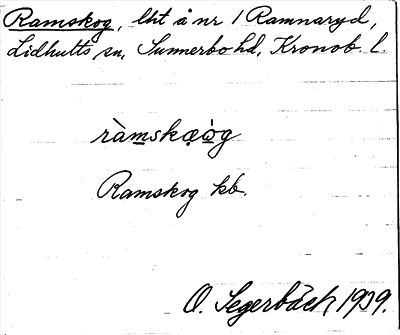 Ramskog, lht å nr 1 Ramnaryd,
Lidhults sn, Sunnerbo hd, Kronob. l.
ràmskæ̣òg
Ramskog kb.
O. Segerbäck 1939.